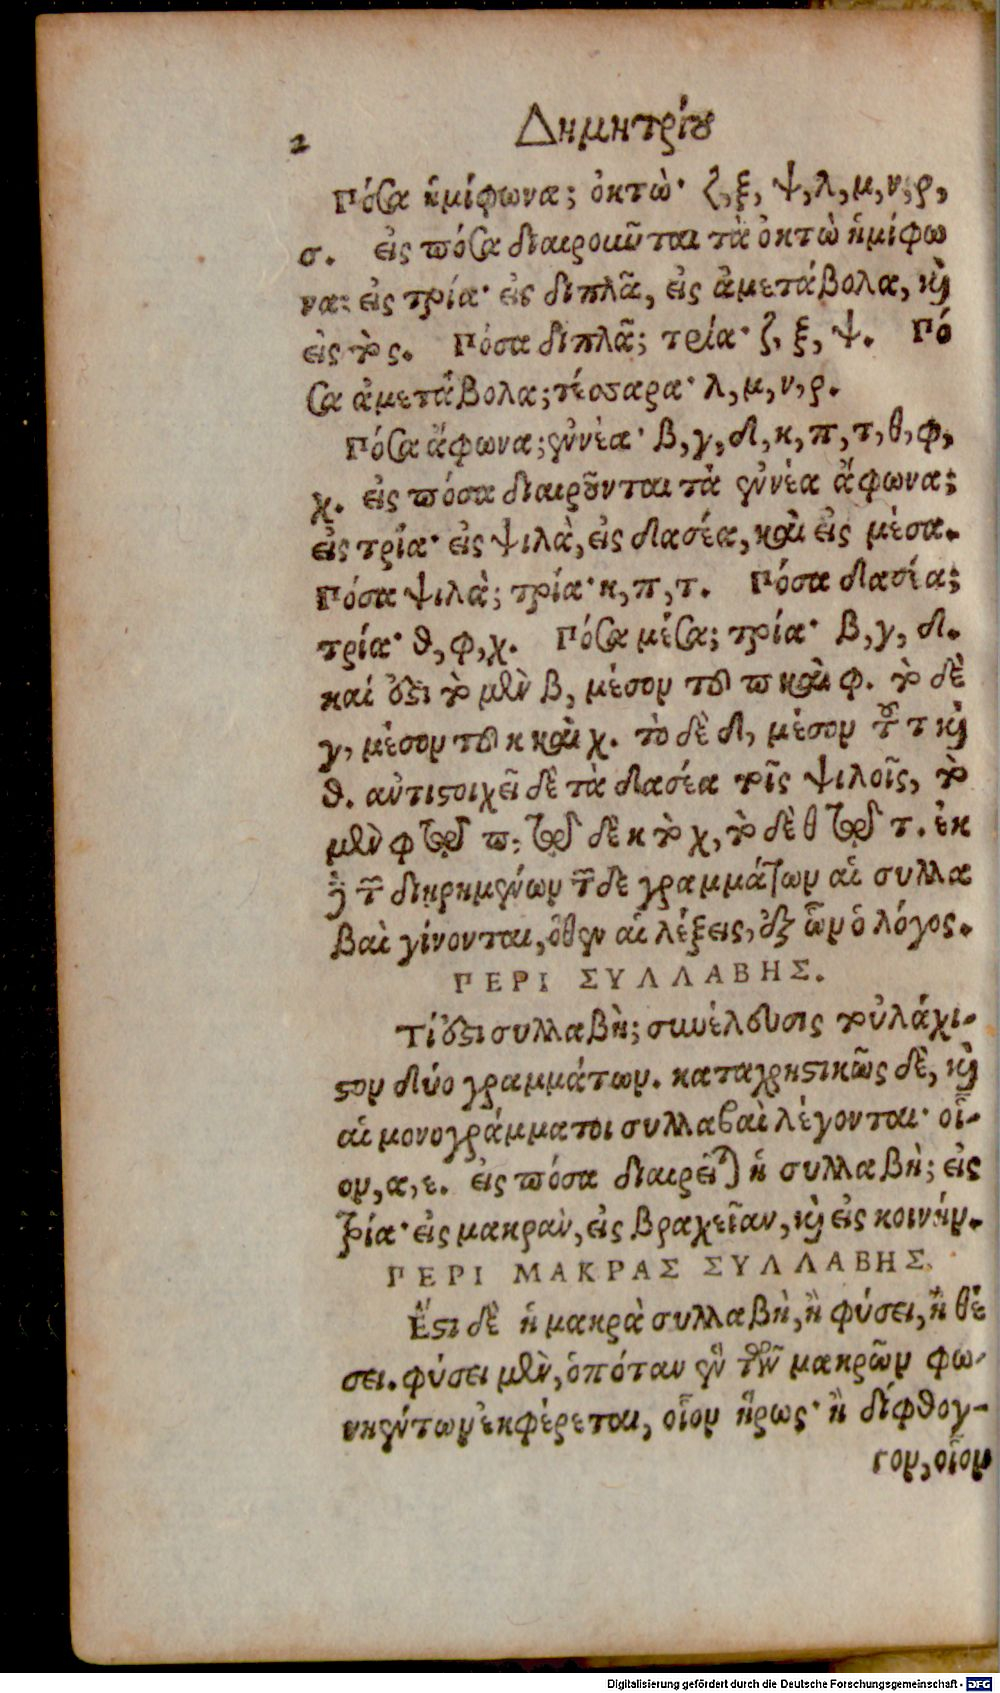 2 Δημητρίου
Πόσα ἡμίφωνα; ὀκτὼ· ζ, ξ, ψ, λ, μ, ν, ρ,
σ. εἰς πόσα διαιροῦνται τὰ ὀκτὼ ἡμίφω
να; εἰς τρία· εἰς διπλᾶ, εἰς ἀμετάβολα, καὶ
εἰς τὸ ς. Πόσα διπλᾶ; τρία· ζ, ξ, ψ. Πό
σα ἀμετάβολα; τέσσαρα· λ, μ, ν, ρ.
Πόσα ἄφωνα; ἐννέα· β, γ, δ, κ, π, τ, θ, φ,
χ. εἰς πόσα διαιροῦνται τὰ ἐννέα ἄφωνα;
εἰς τρία· εἰς ψιλὰ, εἰς δασέα, καὶ εἰς μέσα.
Πόσα ψιλὰ; τρία· κ, π, τ. Πόσα δασέα;
τρία· θ, φ, χ. Πόσα μέσα; τρία· β, γ, δ.
καί ἐστι τὸ μὲν β, μέσον τοῦ π καὶ φ. τὸ δὲ
γ, μέσον τοῦ κ καὶ χ. τὸ δὲ δ, μέσον τοῦ τ καὶ
θ. ἀντιστοιχεῖ δὲ τὰ δασέα τοῖς ψιλοῖς, τὸ
μὲν φ τῷ π. τῷ δὲ κ τὸ χ, τὸ δὲ θ τῷ τ. ἐκ
διῃρημένων τῶνδε γραμμάτων αἱ συλλα
βαὶ γίνονται, ὅθεν αἱ λέξεις, ἐξ ὧν ὁ λόγος.
ΠΕΡΙ ΣΥΛΛΑΒΗΣ.
Τί ἐστι συλλαβὴ; συνέλευσις τοὐλάχι-
στον δύο γραμμάτων. καταχρηστικῶς δὲ, καὶ
αἱ μονογράμματοι συλλαβαὶ λέγονται· οἷ-
ον, α, ε. εἰς πόσα διαιρεῖται ἡ συλλαβὴ; εἰς
τρία· εἰς μακρὰν, εἰς βραχεῖαν, καὶ εἰς κοινήν.
ΠΕΡΙ ΜΑΚΡΑΣ ΣΥΛΛΑΒΗΣ.
Ἔστι δὲ ἡ μακρὰ συλλαβὴ, ἢ φύσει, ἢ θέ
σει. φύσει μὲν, ὁπόταν ἓν τῶν μακρῶν φω-
νηέντων ἐκφέρεται, οἷον ἥρως· ἢ δίφθογ-
γον, οἷον
Digitalisierung gefördert durch die Deutsche Forschungsgemeinschaft - DFG